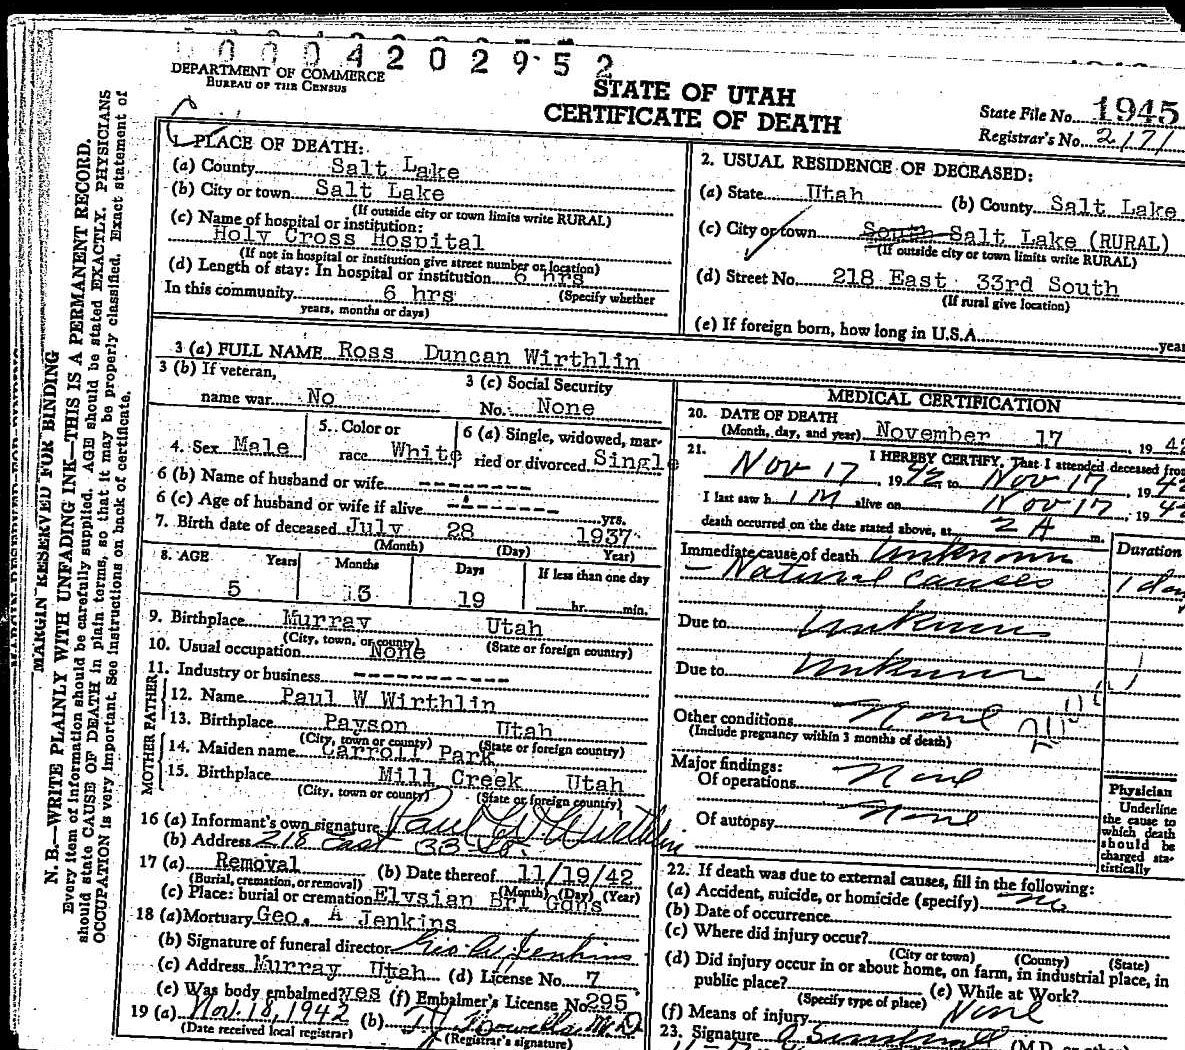 0004202952
DEPARTMENT OF COMMERCE
BUREAU OF THE CENSUS
STATE OF UTAH
CERTIFICATE OF DEATH
State File No. 1945
Registrar's No. 2171
MARGIN RESERVED FOR BINDING
N. B.—WRITE PLAINLY WITH UNFADING INK—THIS IS A PERMANENT RECORD.
Every item of information should be carefully supplied. AGE should be stated EXACTLY. PHYSICIANS
should state CAUSE OF DEATH in plain terms, so that it may be properly classified. Exact statement of
OCCUPATION is very important. See instructions on back of certificate.
1. PLACE OF DEATH:
(a) County Salt Lake
(b) City or town Salt Lake
(If outside city or town limits write RURAL)
(c) Name of hospital or institution:
Holy Cross Hospital
(If not in hospital or institution give street number or location)
(d) Length of stay: In hospital or institution 6 hrs
In this community 6 hrs (Specify whether
years, months or days)
2. USUAL RESIDENCE OF DECEASED:
(a) State Utah (b) County Salt Lake
(c) City or town South Salt Lake (RURAL)
(If outside city or town limits write RURAL)
(d) Street No. 218 East 33rd South
(If rural give location)
(e) If foreign born, how long in U.S.A. year
3 (a) FULL NAME Ross Duncan Wirthlin
3 (b) If veteran,
name war No
3 (c) Social Security
No. None
4. Sex Male
5. Color or
race White
6 (a) Single, widowed, mar-
ried or divorced Single
6 (b) Name of husband or wife -------
6 (c) Age of husband or wife if alive ------- yrs.
7. Birth date of deceased July 28 1937
(Month) (Day) Year)
8. AGE Years Months Days If less than one day
5 13 19 hr. min.
9. Birthplace Murray Utah
(City, town, or county) (State or foreign country)
10. Usual occupation None
11. Industry or business ----------
FATHER
12. Name Paul W Wirthlin
13. Birthplace Payson Utah
(City, town or county) (State or foreign country)
MOTHER
14. Maiden name Carroll Park
15. Birthplace Mill Creek Utah
(City, town or county) (State or foreign country)
16 (a) Informant's own signature Paul W Wirthlin
(b) Address 218 East 33 So.
17 (a) Removal (b) Date thereof 11/19/42
(Burial, cremation, or removal) (Month) (Day) (Year)
(c) Place: burial or cremation Elysian Brl Gdns
18 (a) Mortuary Geo. A Jenkins
(b) Signature of funeral director Geo A Jenkins
(c) Address Murray Utah (d) License No. 7
(e) Was body embalmed? yes (f) Embalmer's License No 295
19 (a) Nov. 18, 1942 (b) M.D.
(Date received local registrar) (Registrar's signature)
MEDICAL CERTIFICATION
20. DATE OF DEATH
(Month, day, and year) November 17, 1942
21. I HEREBY CERTIFY, That I attended deceased from
Nov 17, 1942 to Nov 17, 1942
I last saw him alive on Nov 17, 1942
death occurred on the date stated above, at 2 A m.
Immediate cause of death Unknown Duration
— Natural causes 1 day
Due to Unknown
Due to Unknown
Other conditions None
(Include pregnancy within 3 months of death)
Major findings:
Of operations None
Of autopsy None
Physician
Underline
the cause to
which death
should be
charged sta-
tistically
22. If death was due to external causes, fill in the following:
(a) Accident, suicide, or homicide (specify) no
(b) Date of occurrence
(c) Where did injury occur?
(City or town) (County) (State)
(d) Did injury occur in or about home, on farm, in industrial place, in
public place? (e) While at Work?
(Specify type of place)
(f) Means of injury None
23. Signature (M.D. or other)